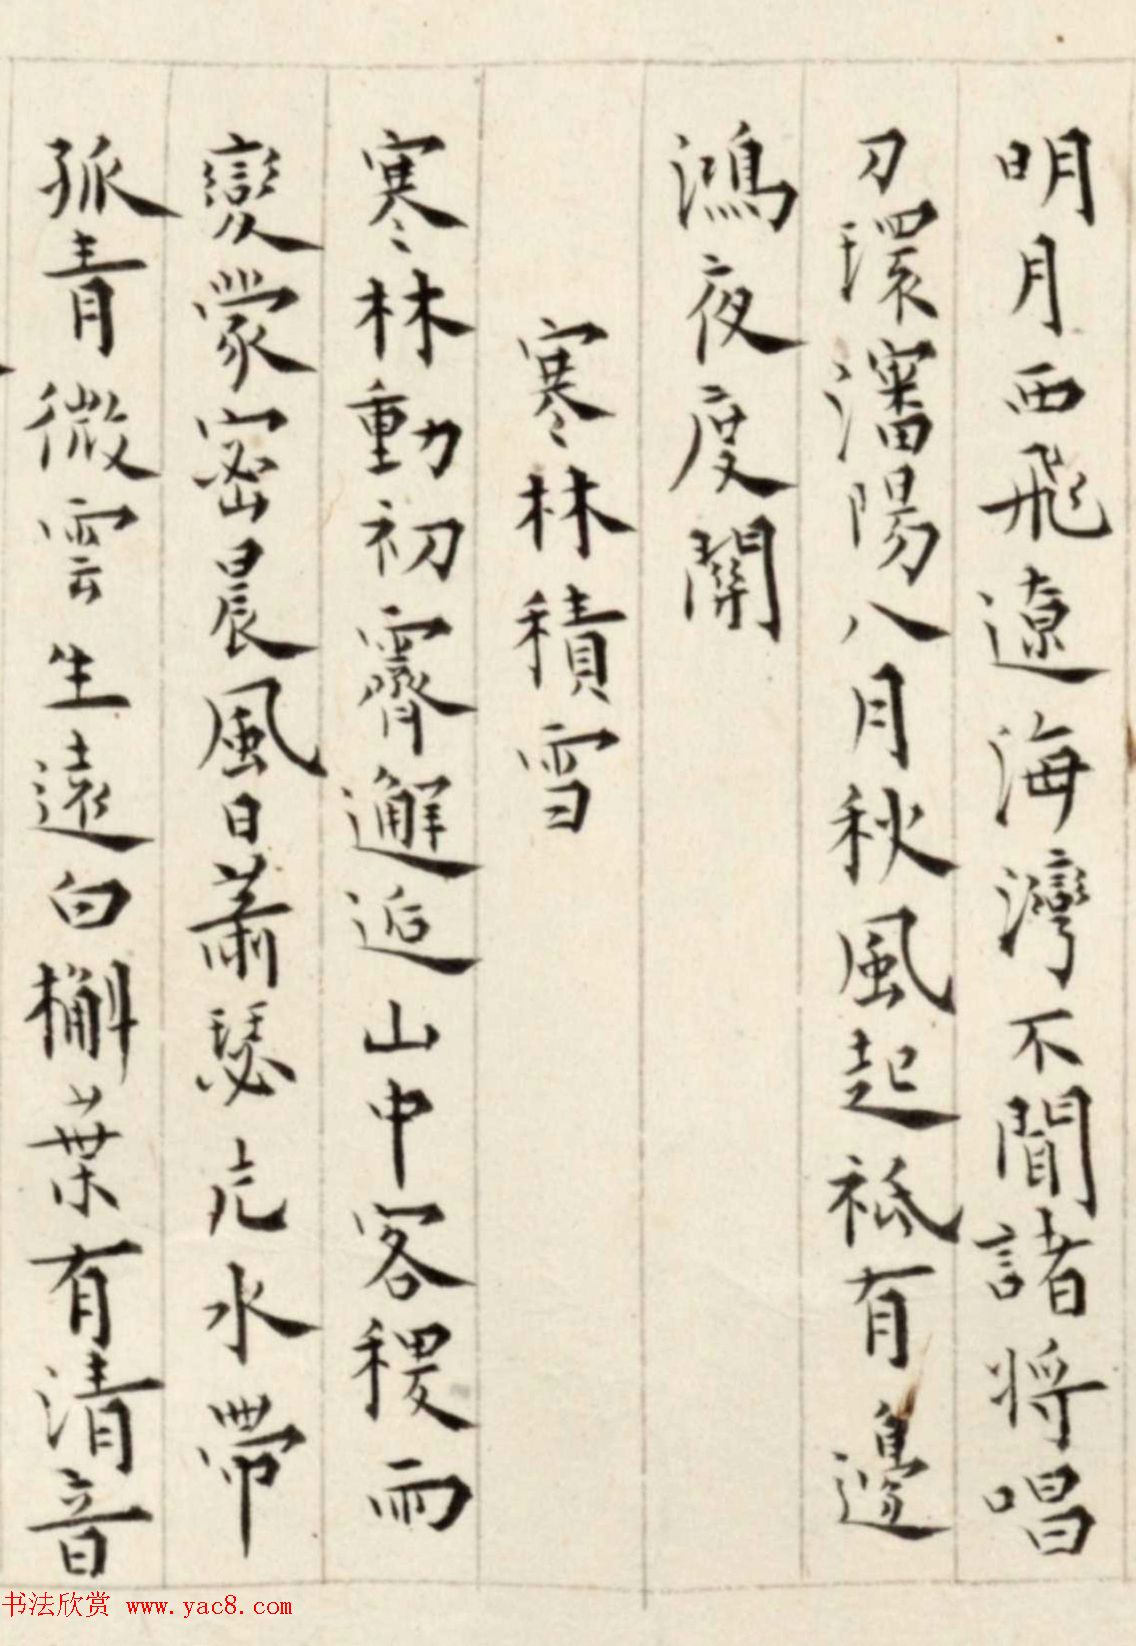 明月西飛遼海灣不聞諸將唱
刀環瀋陽八月秋風起祗有邊
鴻夜度關
寒林積雪
寒林動初霽邂逅山中客稷而
變蒙密晨風日蕭瑟元水帶
孤青微雲生遠白槲葉有清音
书法欣赏 www.yac8.com